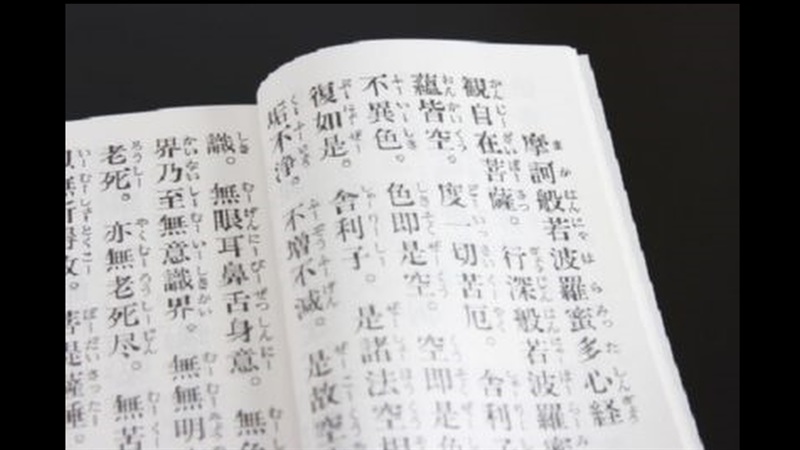 摩訶般若波羅蜜多心経
観自在菩薩。行深般若波羅蜜
蘊皆空。度一切苦厄。舎利子
不異色。色即是空。空即是色
復如是。舎利子。是諸法空相
垢不浄。不増不減。是故空
識。無眼耳鼻舌身意。無色
界乃至無意識界。無無明
老死。亦無老死尽。無苦
以無所得故。菩提薩埵